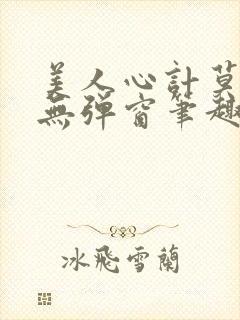 美人心計莫
無彈窗筆趣
冰飛雪蘭